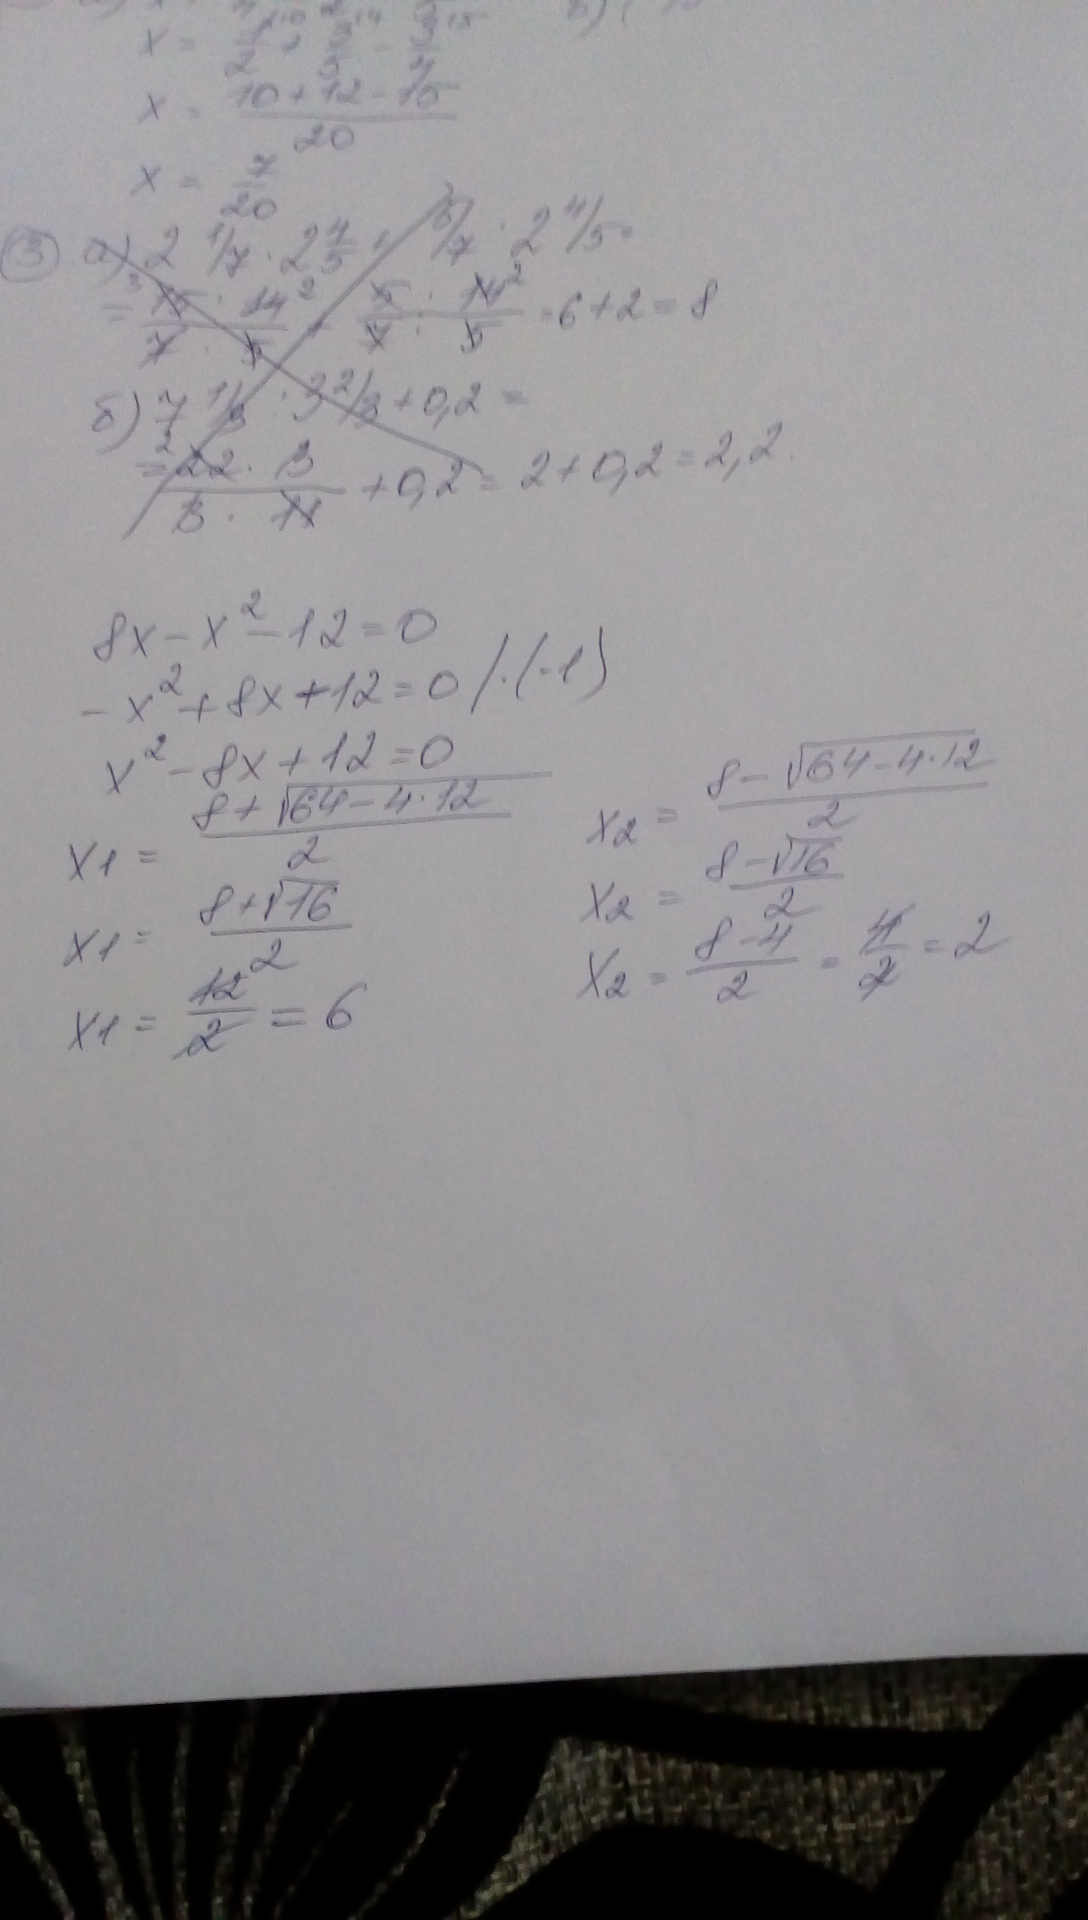 x = 
x = 10 + 12 - 15 / 20
x = 7/20
③ а) 2 1/7 · 2 4/5 + 5/7 · 2 4/5 =
= 15 · 14 / 7 · 5 + 5 · 14 / 7 · 5 = 6 + 2 = 8
б) 7 1/3 : 3 2/3 + 0,2 =
= 22 · 3 / 3 · 11 + 0,2 = 2 + 0,2 = 2,2
8x - x² - 12 = 0
- x² + 8x + 12 = 0 / · (-1)
x² - 8x + 12 = 0
x1 = 8 + √64 - 4 · 12 / 2
x1 = 8 + √16 / 2
x1 = 12/2 = 6
x2 = 8 - √64 - 4 · 12 / 2
x2 = 8 - √16 / 2
x2 = 8 - 4 / 2 = 4/2 = 2